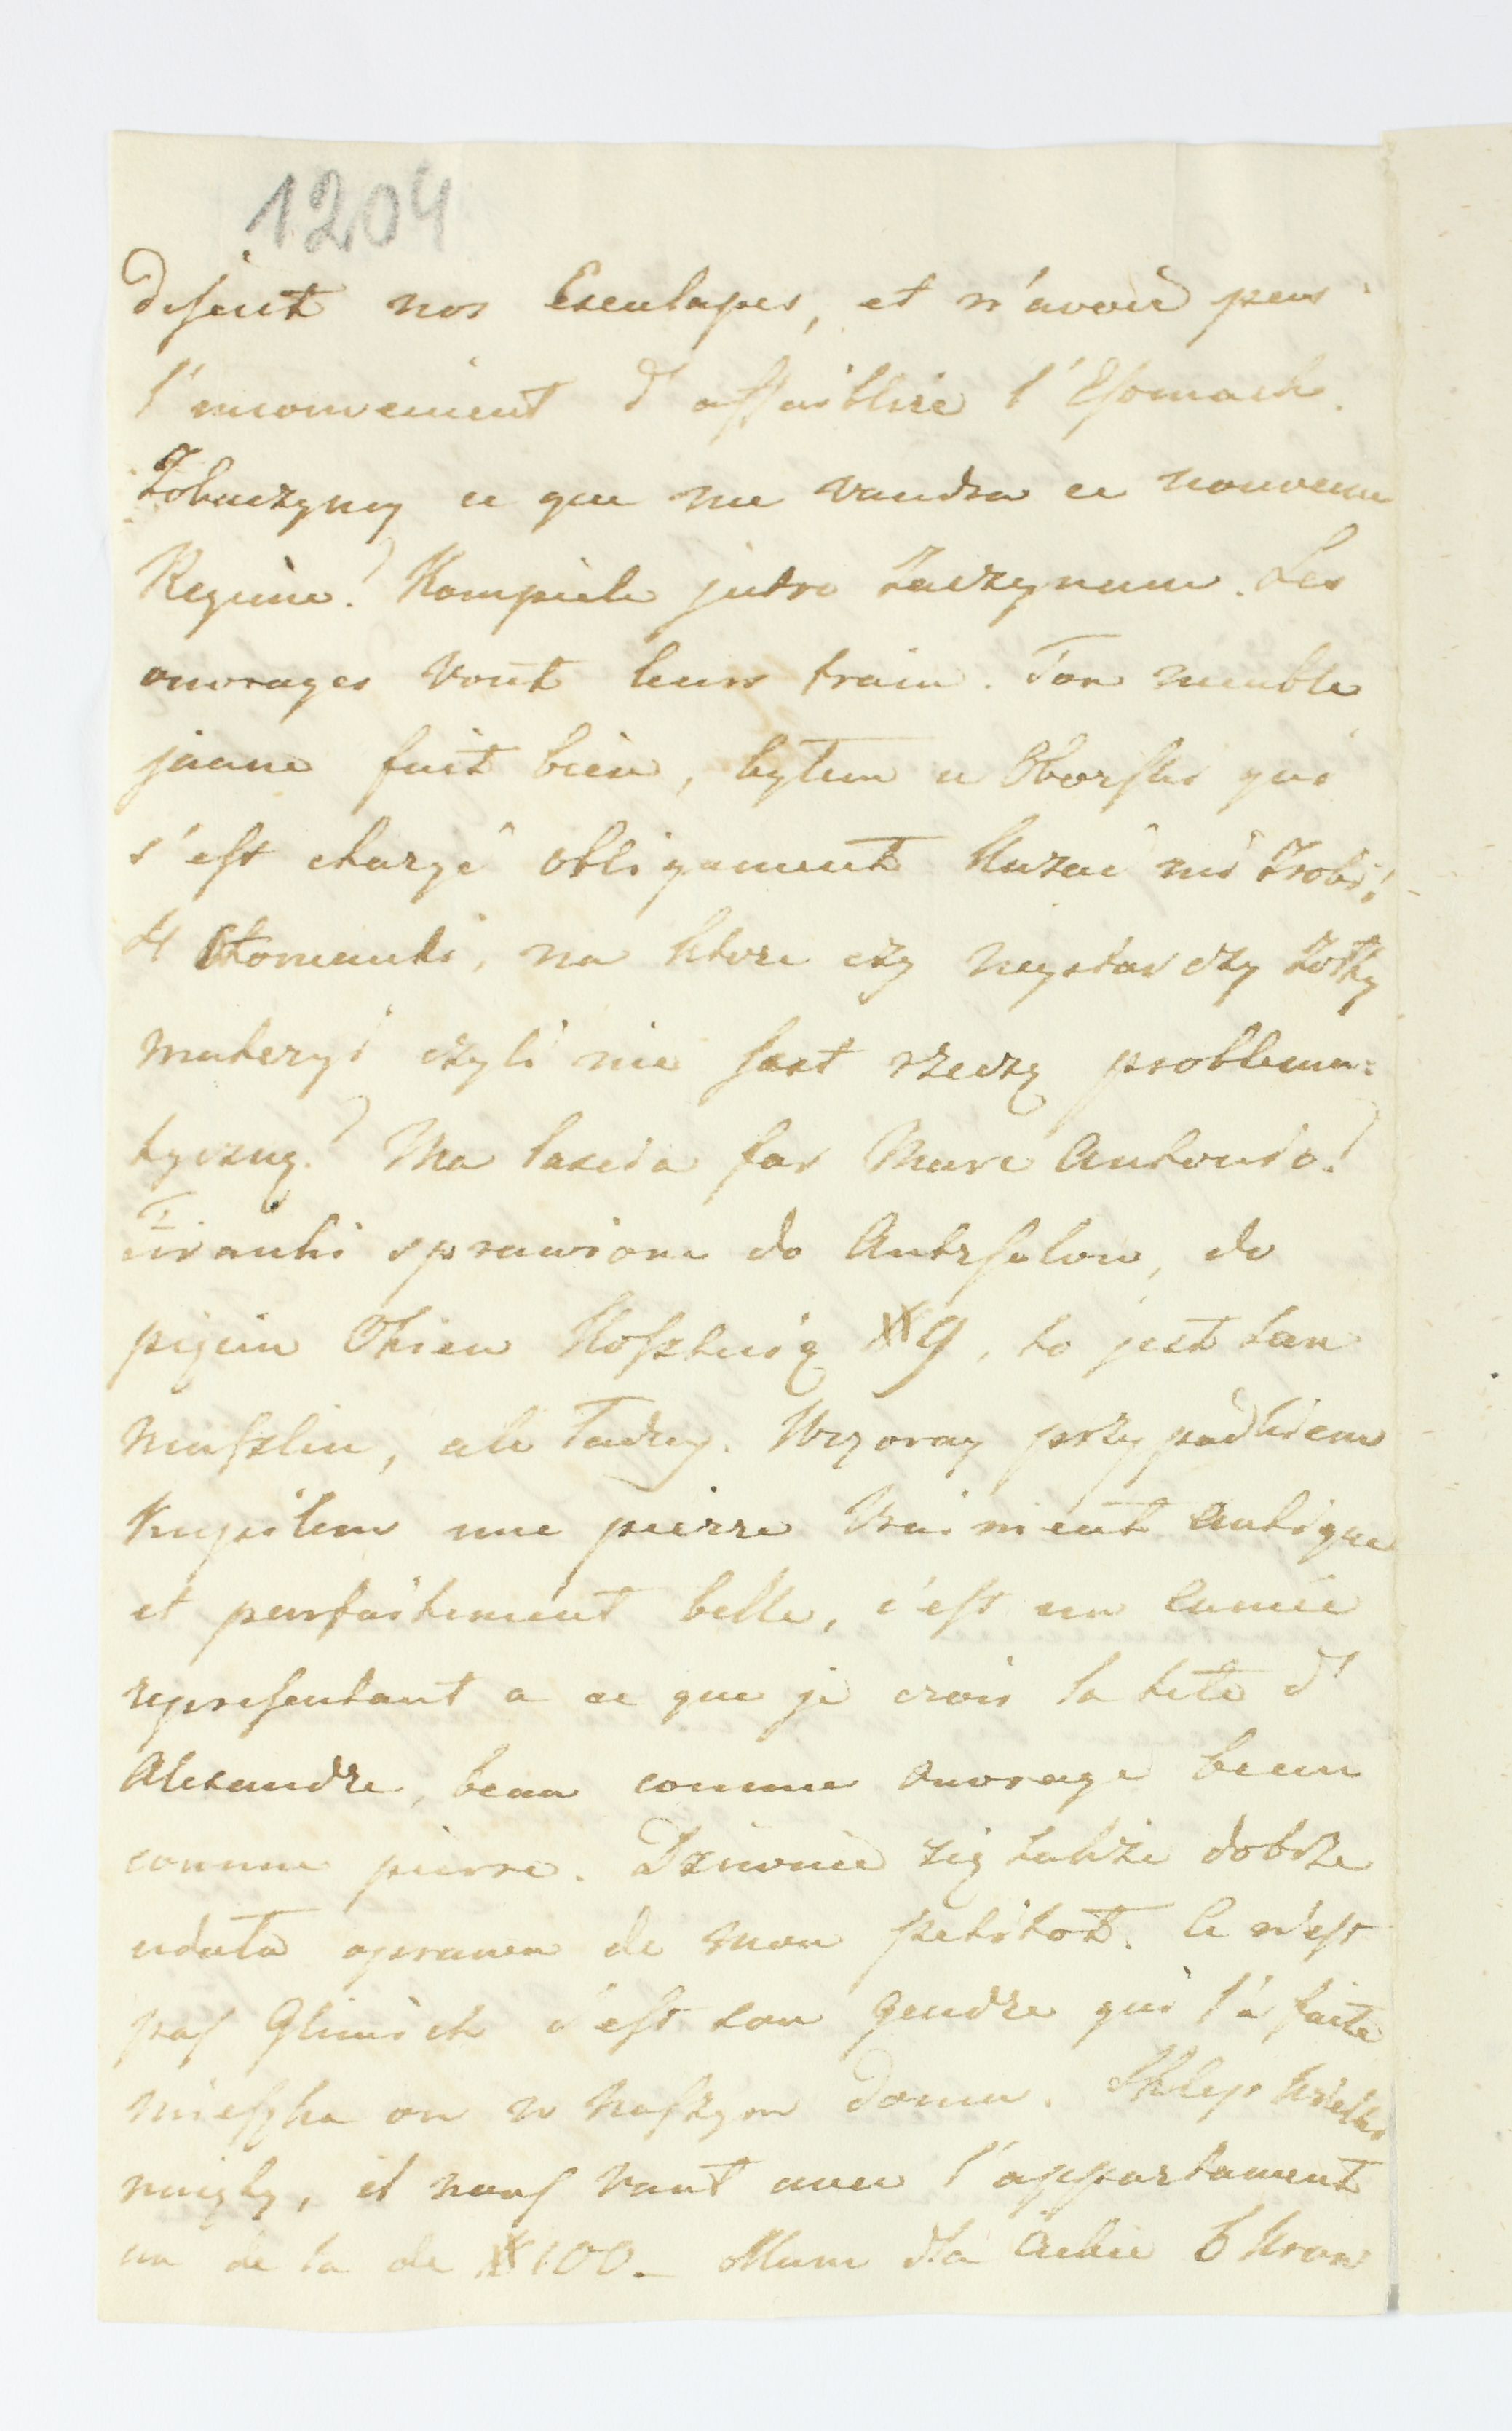 1204
disent nos Esculapes, et n'avoir pas
l'inconvenient d'affaiblire l'Esomach.
Zobaczymy ce que me vaudra ce nouveau
Regime? Kompiele jutro zaczynam. Les
ouvrages vont leurs train. Ton meuble
jaune fait bien, bytem u Oborski qui
s'est chargé obligament kazać mi zrobić
4 Otomanki, na ktore czy wystarczy żołty
materyi czyli nie jest rzeczą problema:
tyczną? Ma lascia far Marc Antonio!
Firanki sprawione do Antrsalou, do
pięciu Okien kosztuią # 9, to jest tan
muszlin, ale ładny. Wczoray przypadkiem
kupiłem une pierre vraiment antique
et parfaitement belle, c'est un camée
representant a ce que je crois la tete d'
Alexandre, beau comme ouvrage beau
comme pierre. Dziwnie się także dobrze
udała oprawa de mon petitot. Ce n'est
pas Glinich c'est son gendre qui l'a faite
mieszka on w naszym domu. Sklep wielki
naięty, il nous vaut avec l'appartament
au de la de # 100. Mam dla Ciebie 6 kron